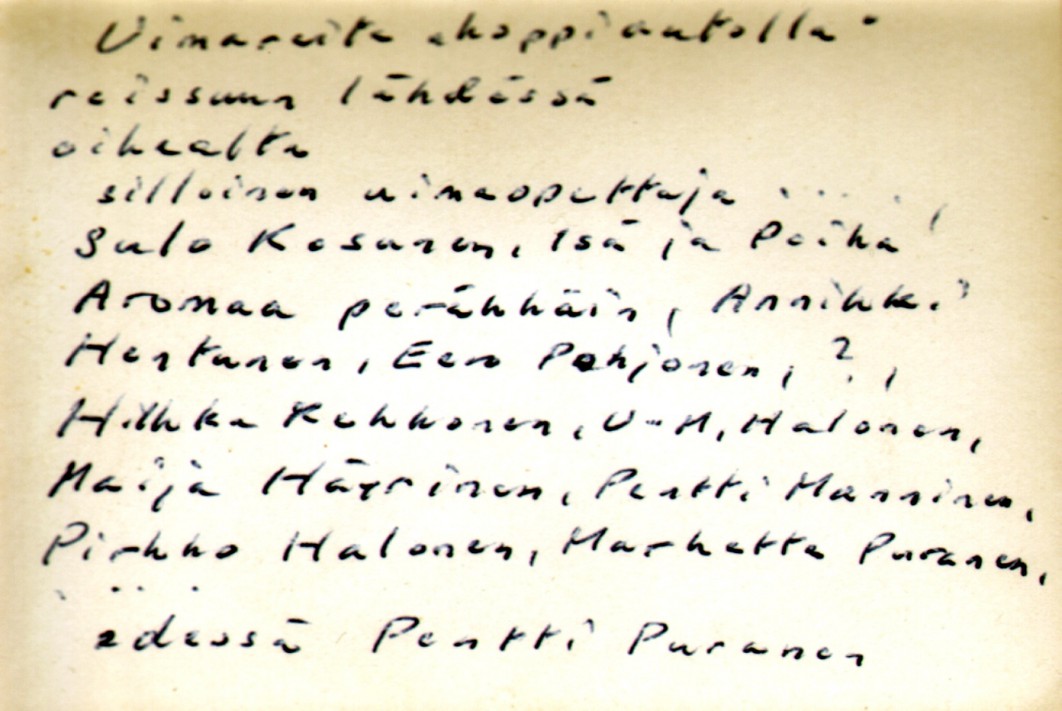 Uimareita "koppiautolla"
reissuun lähdössä
oikealta
silloinen uimaopettaja ....,
Sulo Kosunen, Isä ja Poika
Aromaa peräkkäin, Annikki
Hentunen, Eero Pohjonen, ?,
Hilkka Kekkonen, U-M, Halonen,
Maija Häyrinen, Pentti Manninen,
Pirkko Halonen, Marketta Puranen,
edessä Pentti Puranen